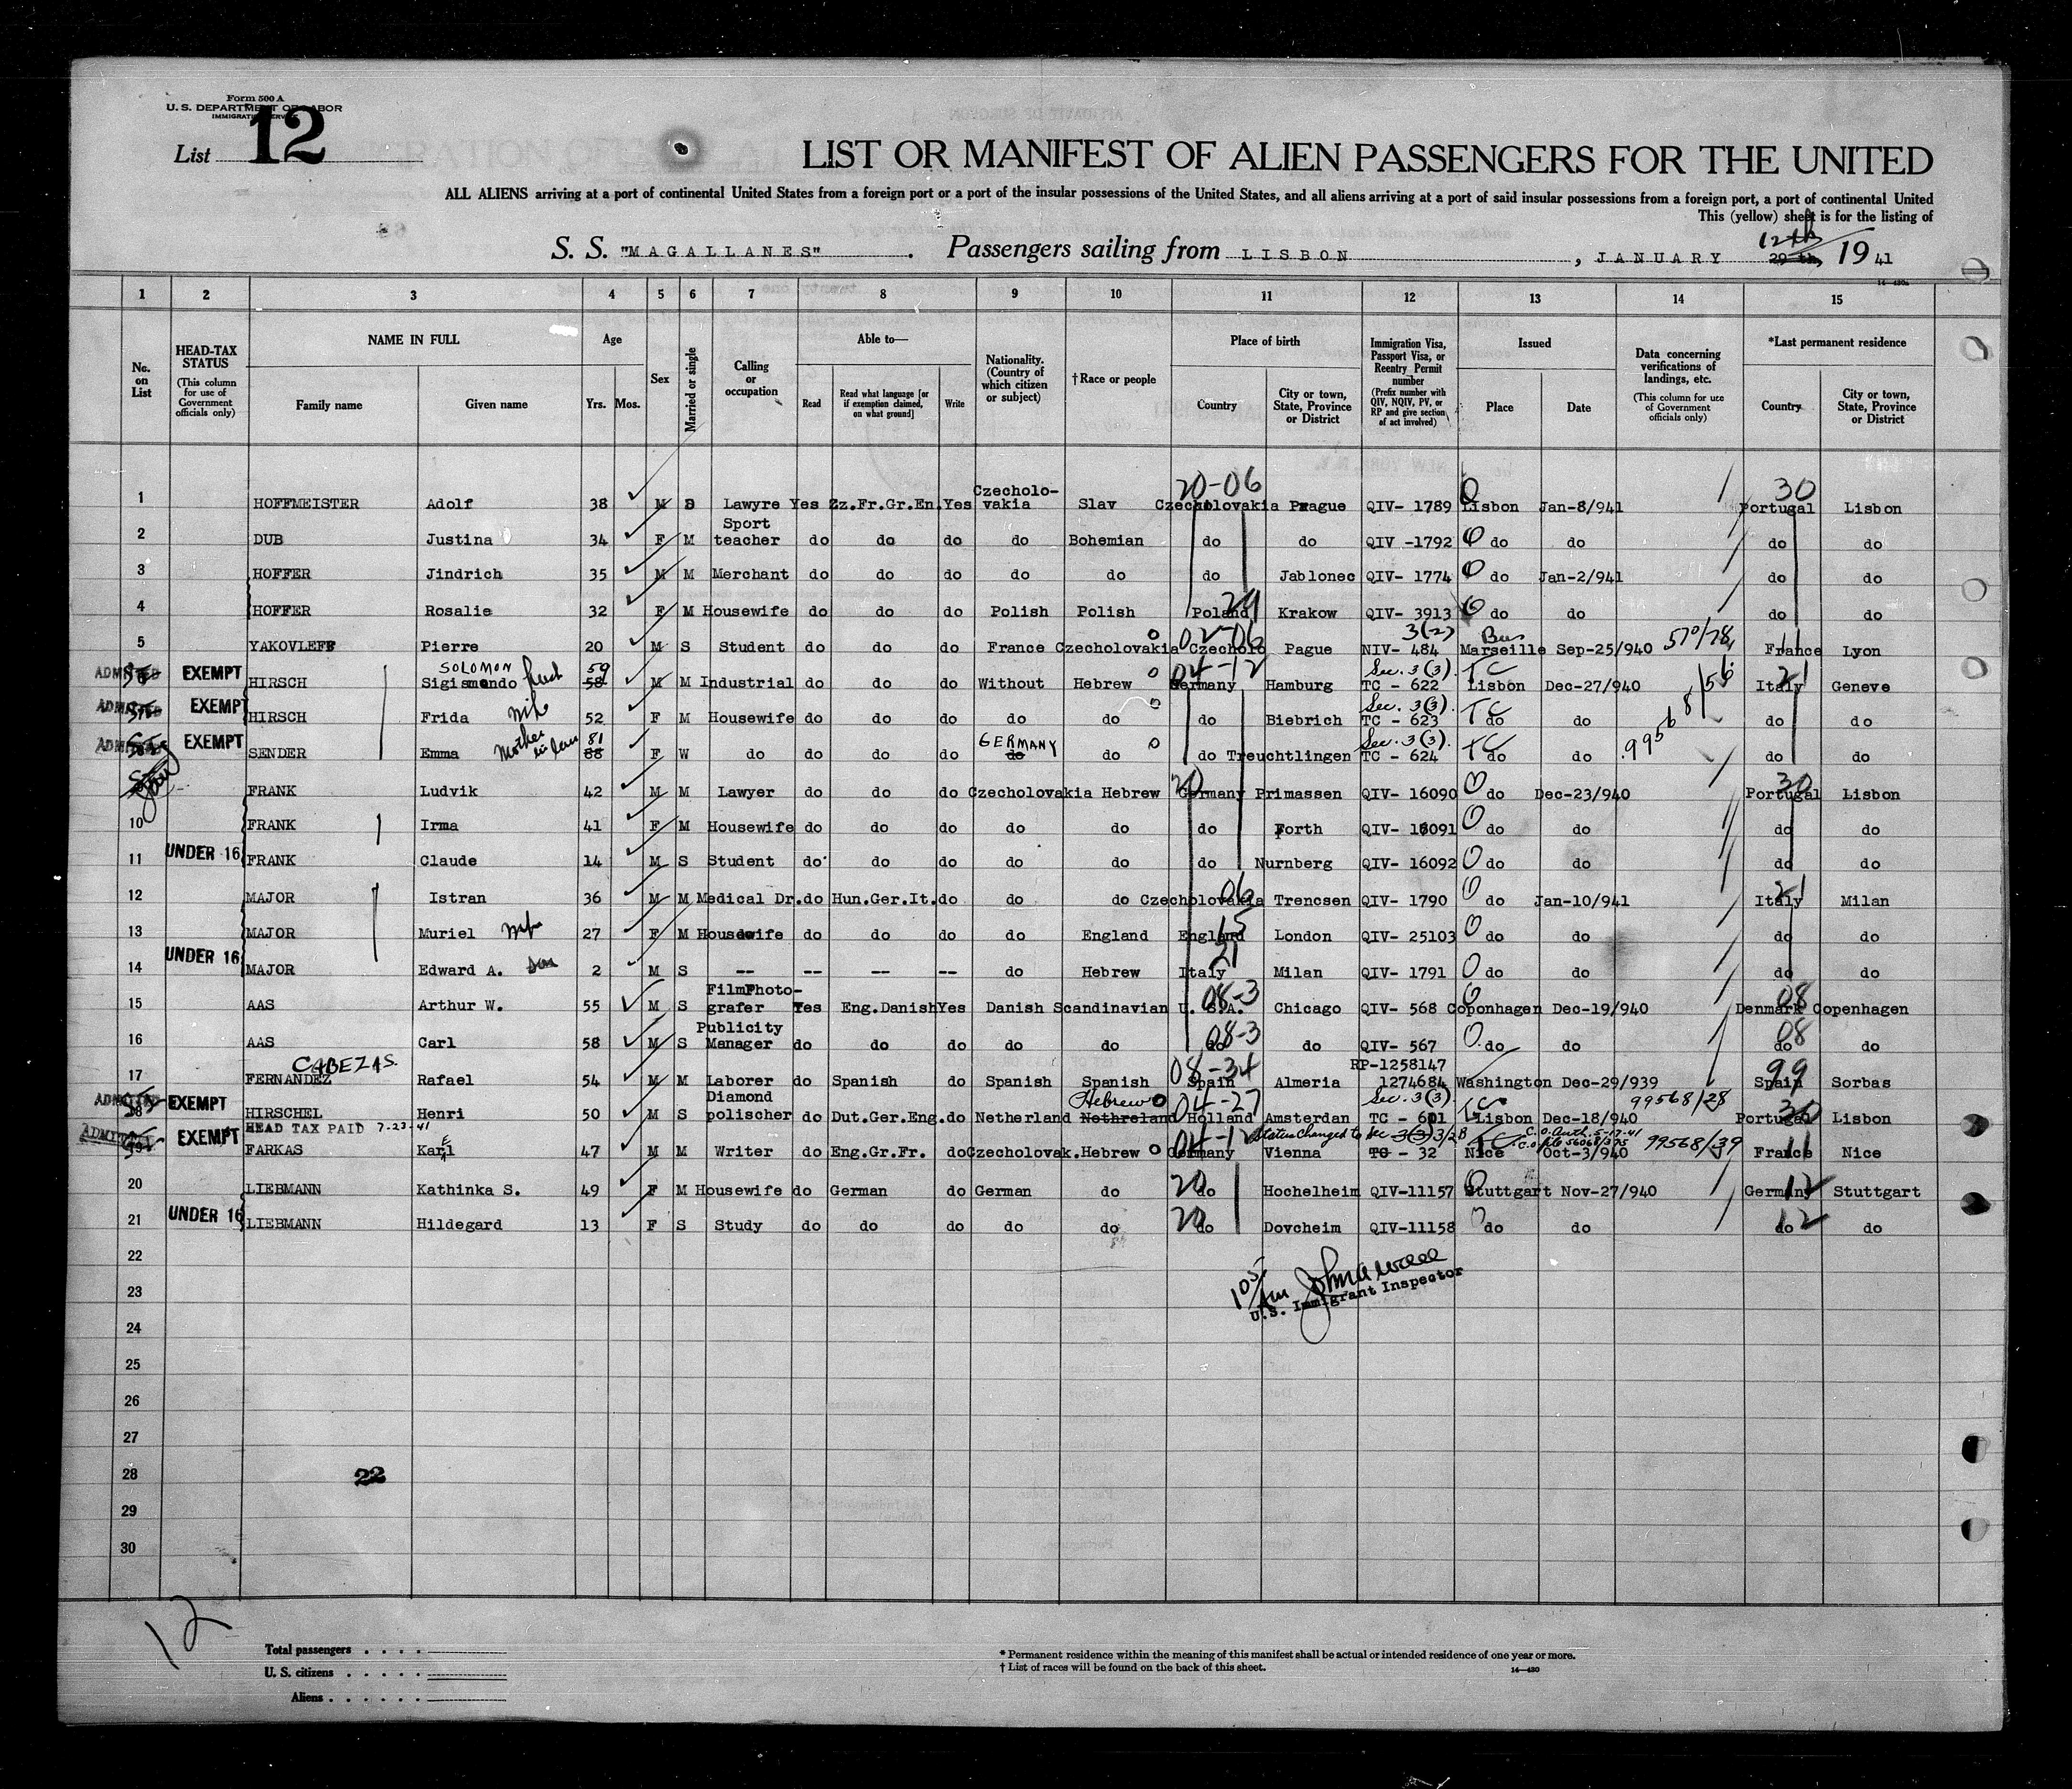 Form 500 A
U. S. DEPARTMENT OF LABOR
IMMIGRATION SERVICE
List 12
LIST OR MANIFEST OF ALIEN PASSENGERS FOR THE UNITED
ALL ALIENS arriving at a port of continental United States from a foreign port or a port of the insular possessions of the United States, and all aliens arriving at a port of said insular possessions from a foreign port, a port of continental United
This (yellow) sheet is for the listing of
S. S. "MAGALLANES". Passengers sailing from LISBON, JANUARY 12th 29 th, 1941
14-430a
1 2 3 4 5 6 7 8 9 10 11 12 13 14 15
No. on List
HEAD-TAX STATUS (This column for use of Government officials only)
NAME IN FULL Family name Given name
Age Yrs. Mos.
Sex
Married or single
Calling or occupation
Able to— Read Read what language [or if exemption claimed, on what ground] Write
Nationality. (Country of which citizen or subject)
†Race or people
Place of birth Country City or town, State, Province or District
Immigration Visa, Passport Visa, or Reentry Permit number (Prefix number with QIV, NQIV, PV, or RP and give section of act involved)
Issued Place Date
Data concerning verifications of landings, etc. (This column for use of Government officials only)
*Last permanent residence Country City or town, State, Province or District
1 HOFFMEISTER Adolf 38 M D Lawyre Yes Zz.Fr.Gr.En. Yes Czecholo-vakia Slav 20-06 Czecholovakia Prague QIV- 1789 Lisbon Jan-8/941 30 Portugal Lisbon
2 DUB Justina 34 F M Sport teacher do do do do Bohemian do do QIV -1792 do do do do
3 HOFFER Jindrich 35 M M Merchant do do do do do do Jablonec QIV- 1774 do Jan-2/941 do do
4 HOFFER Rosalie 32 F M Housewife do do do Polish Polish Poland Krakow QIV- 3913 do do do do
5 YAKOVLEFF Pierre 20 M S Student do do do France Czecholovakia 02-06 Czecholo Pague 3(2) NIV- 484 Marseille Sep-25/940 570/78 11 France Lyon
ADMITTED EXEMPT HIRSCH SOLOMON Sigismondo 59 58 M M Industrial do do do Without Hebrew 04-12 Germany Hamburg Sec. 3(3). TC - 622 TC Lisbon Dec-27/940 21 Italy Geneve
ADMITTED EXEMPT HIRSCH Frida wife 52 F M Housewife do do do do do do Biebrich Sec. 3(3). TC - 623 TC do do do do
ADMITTED EXEMPT SENDER Emma Mother in law 81 88 F W do do do do GERMANY do do do Treuchtlingen Sec. 3(3). TC - 624 TC do do do do
FRANK Ludvik 42 M M Lawyer do do do Czecholovakia Hebrew 20 Germany Primassen QIV- 16090 do Dec-23/940 30 Portugal Lisbon
10 FRANK Irma 41 F M Housewife do do do do do do Forth QIV- 16091 do do do do
11 UNDER 16 FRANK Claude 14 M S Student do do do do do do Nurnberg QIV- 16092 do do do do
12 MAJOR Istran 36 M M Medical Dr. do Hun.Ger.It. do do do 06 Czecholovakia Trencsen QIV- 1790 do Jan-10/941 21 Italy Milan
13 MAJOR Muriel wife 27 F M Housewife do do do do England 15 England London QIV- 25103 do do do do
14 UNDER 16 MAJOR Edward A. son 2 M S -- -- -- -- do Hebrew 21 Italy Milan QIV- 1791 do do do do
15 AAS Arthur W. 55 M S FilmPhoto-grafer Yes Eng.Danish Yes Danish Scandinavian 08-3 U. S.A. Chicago QIV- 568 Coponhagen Dec-19/940 08 Denmark Copenhagen
16 AAS Carl 58 M S Publicity Manager do do do do do 08-3 do do QIV- 567 do do 08 do do
17 CABEZAS. FERNANDEZ Rafael 54 M M Laborer do Spanish do Spanish Spanish 08-34 Spain Almeria RP-1258147 1274684 Washington Dec-29/939 99 Spain Sorbas
ADMITTED EXEMPT HIRSCHEL Henri 50 M S Diamond polischer do Dut.Ger.Eng. do Netherland Hebrew Nethreland 04-27 Holland Amsterdan Sec. 3(3). TC - 601 TC Lisbon Dec-18/940 99568/28 30 Portugal Lisbon
ADMITTED EXEMPT HEAD TAX PAID 7-23-41 FARKAS Karl 47 M M Writer do Eng.Gr.Fr. do Czecholovak. Hebrew 04-12 Germany Vienna Status changed to Sec 3(3) 3/2B TC - 32 TC Nice Oct-3/940 C.O. Auth. 5-17-41 C.O. file 56068/375 99568/39 11 France Nice
20 LIEBMANN Kathinka S. 49 F M Housewife do German do German do 20 do Hochelheim QIV-11157 Stuttgart Nov-27/940 12 Germany Stuttgart
21 UNDER 16 LIEBMANN Hildegard 13 F S Study do do do do do 20 do Dovcheim QIV-11158 do do 12 do do
22
23
24
25
26
27
28 22
29
30
U.S. Immigrant Inspector
12
Total passengers
U. S. citizens
Aliens
* Permanent residence within the meaning of this manifest shall be actual or intended residence of one year or more.
† List of races will be found on the back of this sheet.
14—430